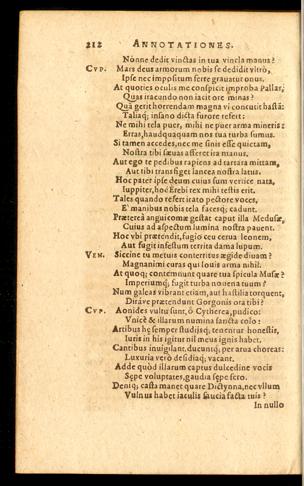 212 ANNOTATIONES.
Nonne dedit vinctas in tua vincla manus?
CVP. Mars deus armorum nobis se dedidit vltrò,
Ipse nec impositum ferre grauatur onus.
At quoties oculis me conspicit improba Pallas,
Quas iracundo non iacit ore minas?
Quã gerit horrendam magna vi concutit hastã:
Taliaq; insano dicta furore refert:
Ne mihi tela puer, mihi ne puer arma mineris:
Erras, haudquaquam nos tua turba sumus.
Si tamen accedes, nec me sinis esse quietam,
Nostra tibi sæuas afferet ira manus.
Aut ego te pedibus rapiens ad tartara mittam,
Aut tibi transfiget lancea nostra latus.
Hoc pater ipse deum cuius sum vertice nata,
Iuppiter, hoc Erebi rex mihi testis erit.
Tales quando refert irato pectore voces,
E' manibus nobis tela facesq; cadunt.
Præterea anguicomæ gestat caput illa Medusæ,
Cuius ad aspectum lumina nostra pauent.
Hoc vbi prætendit, fugio ceu cerua leonem,
Aut fugit infestum territa dama lupum.
VEN. Siccine tu metuis conterritus ægide diuam?
Magnanimi curas qui Iouis arma nihil.
At quoq; contemnunt quare tua spicula Musæ?
Imperiumq; fugit turba nouena tuum?
Num galeas vibrant etiam, aut hastilia torquent,
Diráve prætendunt Gorgonis ora tibi?
CVP. Aonides vultu sunt, ô Cytherea, pudico:
Vnicè & illarum numina sancta colo:
Artibus hę semper studijsq; tenentur honestis,
Iuris in his igitur nil meus ignis habet.
Cantibus inuigilant, ducuntq; per arua choreas:
Luxuria verò desidiaq; vacant.
Adde quòd illarum captus dulcedine vocis
Sępe voluptates, gaudia sępe fero.
Deniq; casta manet quare Dictynna, nec vllum
Vulnus habet iaculis saucia facta tuis?
In nullo